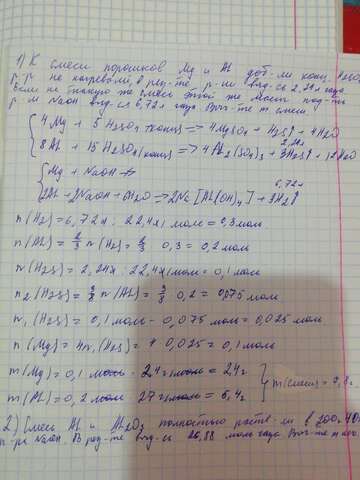 1) К смеси порошков Mg и Al доб-ли конц. H₂SO₄
р-р не нагревали, в рез-те р-ии выд-ся 2,24л газа
Если не такую же смесь этой же массы под-ть
р-м NaOH выд-ся 6,72л газа Выч-те m смеси
4Mg + 5H₂SO₄ конц => 4MgSO₄ + H₂S↑ + 4H₂O
2,24л
8Al + 15H₂SO₄(конц) => 4Al₂(SO₄)₃ + 3H₂S↑ + 12H₂O
Mg + NaOH
6,72л
2Al + 2NaOH + 6H₂O => 2Na[Al(OH)₄] + 3H₂↑
n(H₂) = 6,72л : 22,4л/моль = 0,3моль
n(Al) = 2/3 n(H₂) = 2/3 0,3 = 0,2моль
n(H₂S) = 2,24л : 22,4л/моль = 0,1моль
n₂(H₂S) = 3/8 n(Al) = 3/8 0,2 = 0,075 моль
n₁(H₂S) = 0,1моль - 0,075моль = 0,025моль
n(Mg) = 4n₁(H₂S) = 4 0,025 = 0,1моль
m(Mg) = 0,1 моль 24г/моль = 2,4г
m(Al) = 0,2 моль 27г/моль = 5,4г
m(смеси) =
2) Смесь Al и Al₂O₃ полностью раств-ли в
р-ра NaOH. В рез-те выд-сь моль газа Выч-те m